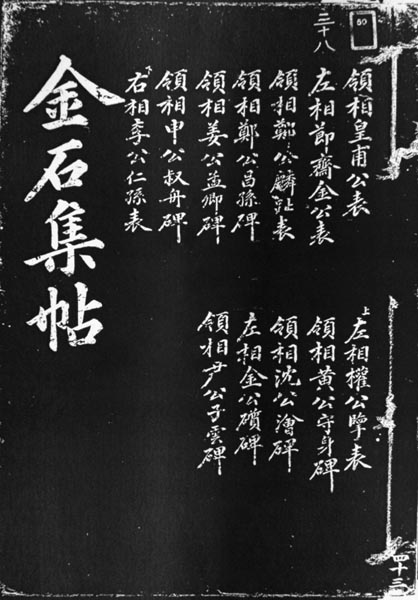 三十八
50
領相皇甫公表
左相節齋金公表
領相鄭公麟趾表
領相鄭公昌孫碑
領相姜公孟卿碑
領相申公叔舟碑
右相李公仁孫表
上
左相權公擥表
領相黃公守身碑
領相沈公澮碑
左相金公礩碑
領相尹公子雲碑
金石集帖
四十三